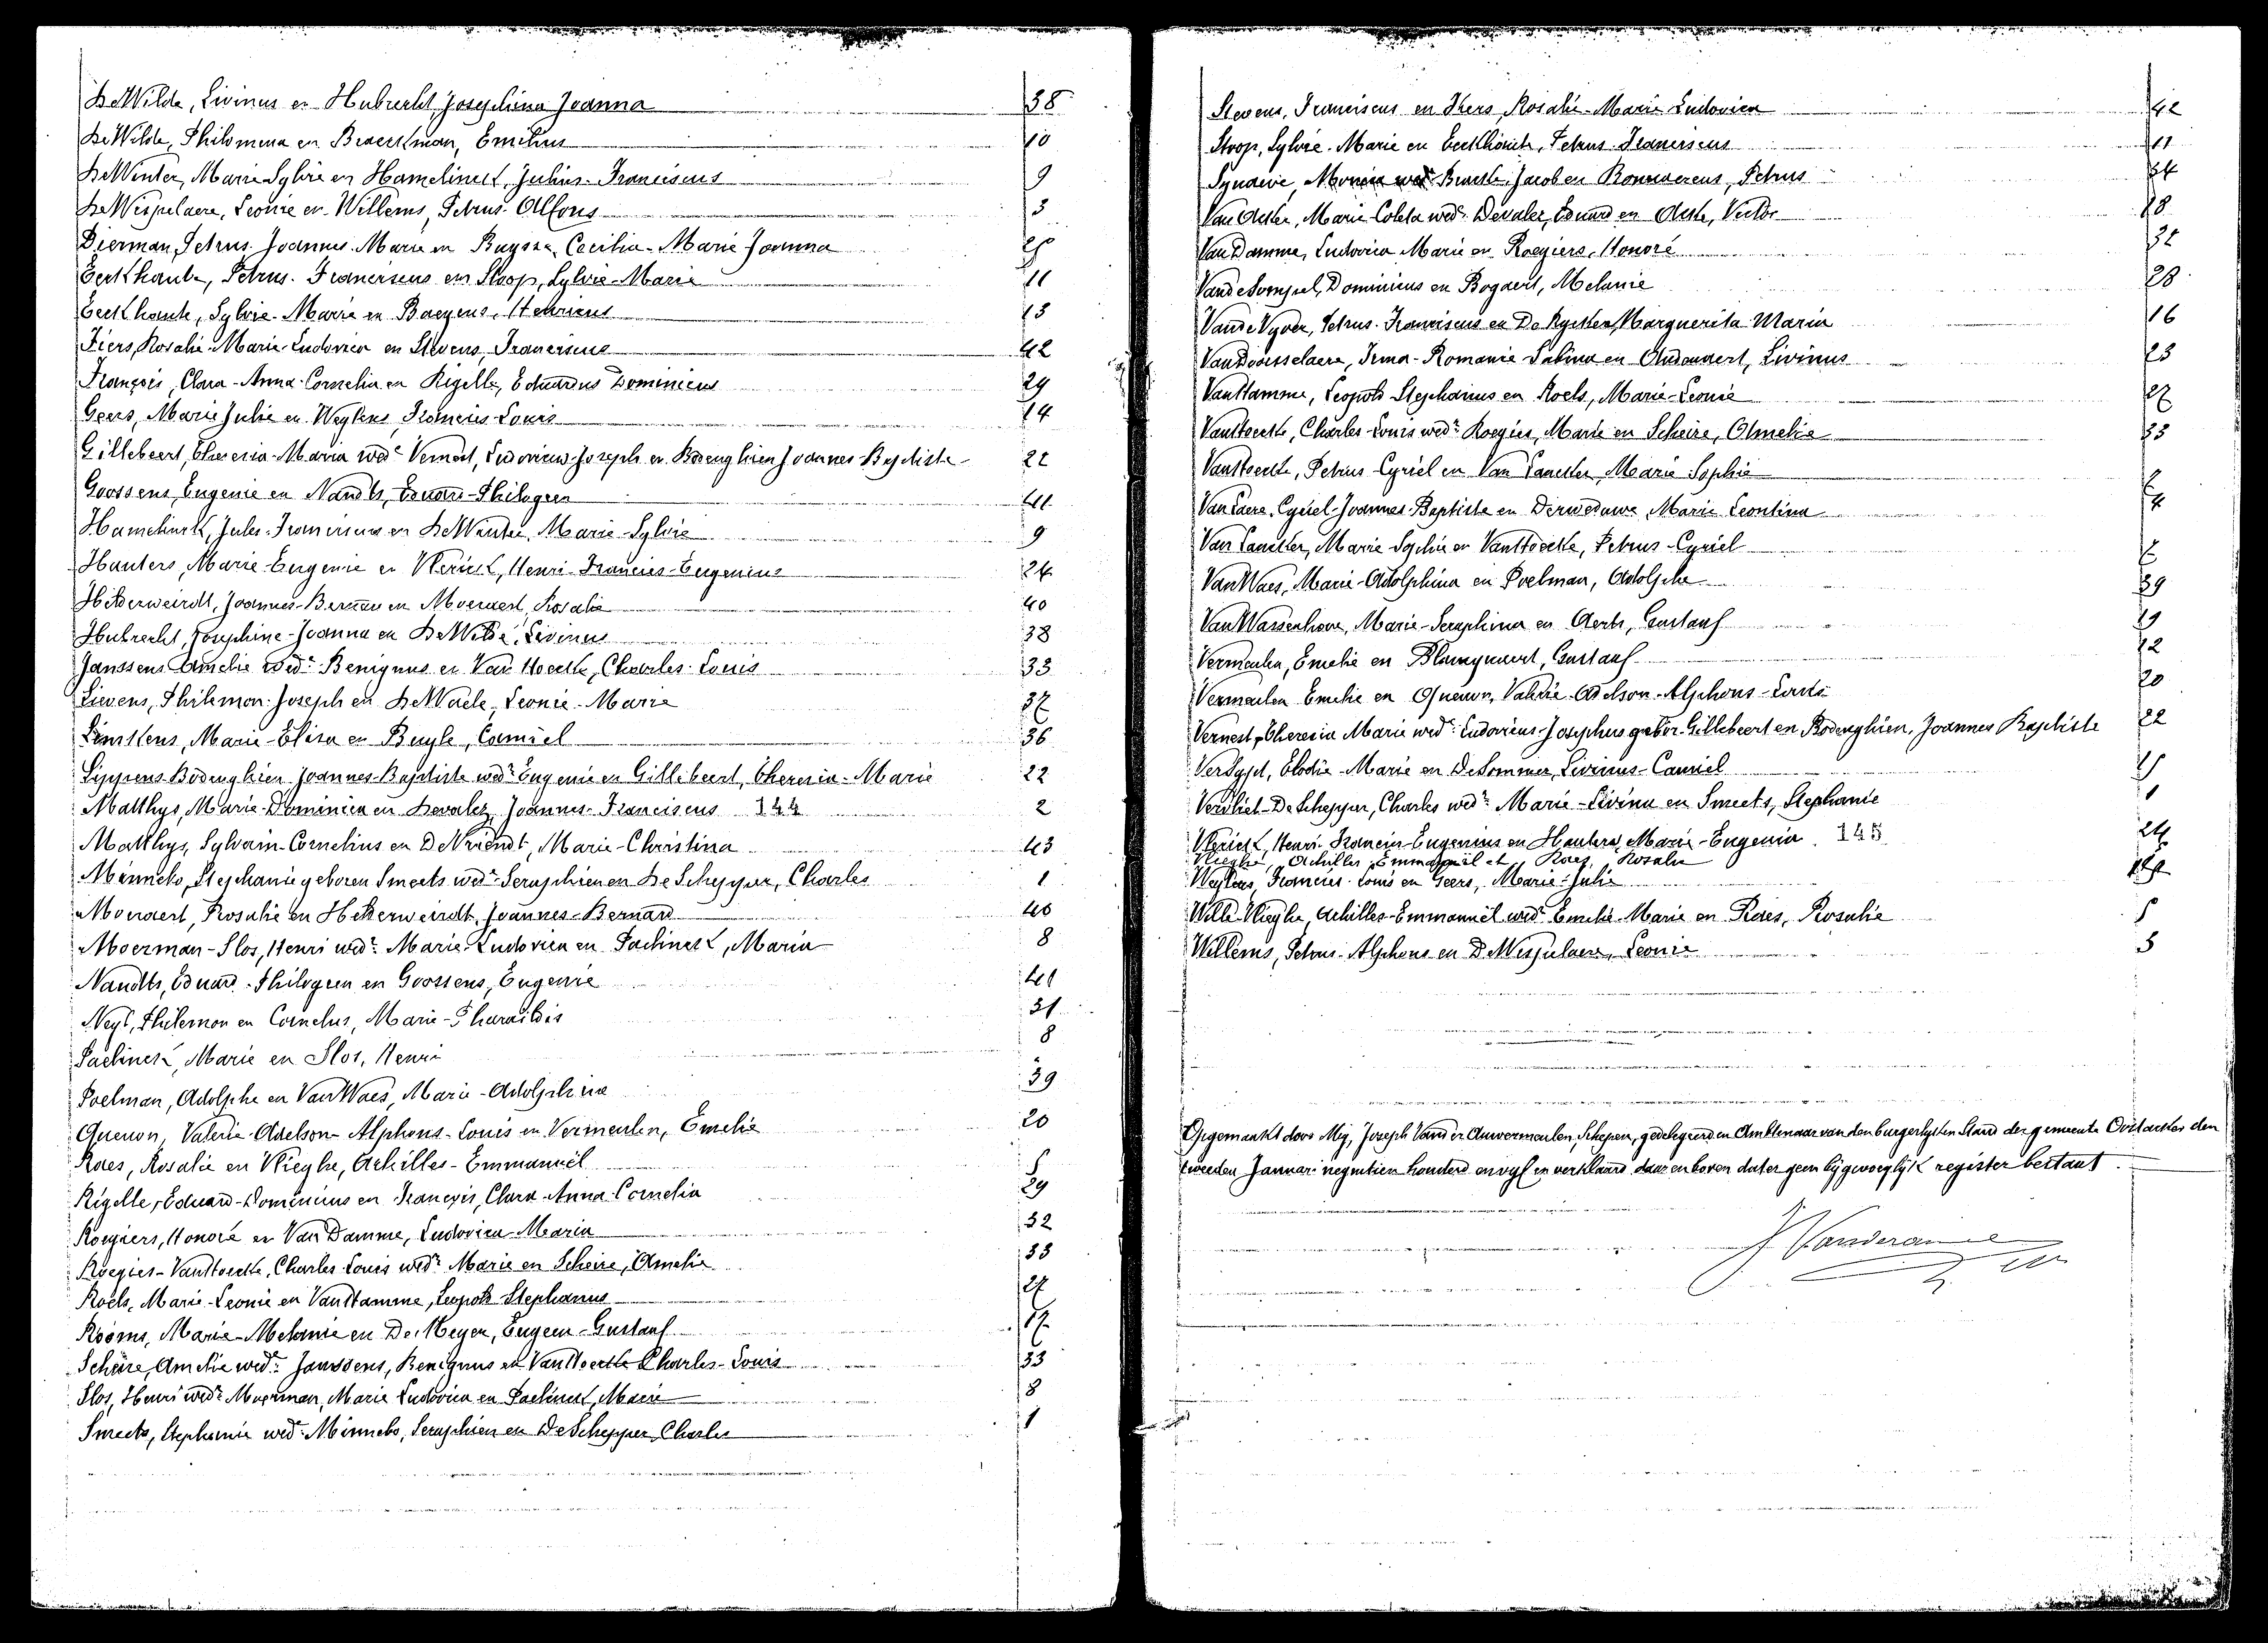 DeWilde, Livinus en Hubrecht, Josephina Joanna 38
DeWilde, Philomena en Braeckman, Emilius 10
DeWinter, Marie Sylvie en Hamelinck, Julius-Franciscus 9
DeWispelaere, Leonie en Willems, Petrus-Alfons 3
Dierman, Petrus Joannes Marie en Buysse, Cecilia-Marie Joanna
Eeckhaute, Petrus-Franciscus en Stoop, Sylvie-Marie 11
Eeckhaute, Sylvie-Marie en Baeyens, Henricus 13
Fiers, Rosalie-Marie-Ludovica en Stevens, Franciscus 42
François, Clara-Anna-Cornelia en Rigelle, Eduardus Dominicus 29
Geers, Marie Julie en Weytens, Francies-Louis 14
Gillebeert, Theresia-Maria wede Vernest, Ludovicus-Joseph en Bodenghien Joannes Baptiste 22
Goossens, Eugenie en Nandts, Eduard-Philogeen 41
Hamelinck, Jules-Franciscus en DeWinter, Marie-Sylvie 9
Hauters, Marie-Eugenie en Vlerick, Henri-Francies-Eugenius 24
Hekerweirdt, Joannes-Bernard en Moeraert, Rosalie 40
Hubrecht, Josephine-Joanna en DeWilde, Livinus 38
Janssens Amelie wedr Benignus en Van Hoecke, Charles-Louis 33
Lievens, Philemon-Joseph en DeWaele, Leonie-Marie 37
Linskens, Marie-Elisa en Buyle, Camiel 36
Lippens-Bodenghien Joannes-Baptiste wedr Eugenie en Gillebeert, Theresia-Marie 22
Matthys, Marie-Dominica en Devaler Joannes-Franciscus 144 2
Matthys, Sylvain-Cornelius en DeVriendt, Marie-Christina 43
Minnebo, Stephanie geboren Smeets wedr Seraphien en DeSchepper, Charles 1
Moeraert, Rosalie en Hekerweirdt, Joannes-Bernard 40
Moerman-Slos, Henri wedr Marie Ludovica en Paelinck, Maria 8
Nandts, Eduard-Philogeen en Goossens, Eugenie 41
Neyt, Philemon en Cornelus, Marie-Pharaildis 31
Paelinck, Marie en Slos, Henri 8
Poelman, Adolphe en VanWaes, Marie-Adolphina 39
Quenon, Valerie-Adelson-Alphons-Louis en Vermeulen, Emelie 20
Raes, Rosalie en Vlieghe, Achilles-Emmanuël 5
Rigelle, Eduard-Dominicus en François, Clara-Anna-Cornelia 29
Roegiers, Honoré en Van Damme, Ludovica-Maria 32
Roegies-VanHoecke, Charles Louis wedr Marie en Scheire, Amelie 33
Roels, Marie-Leonie en VanHamme, Leopold Stephanus 27
Rooms, Marie-Melanie en De Meyer, Eugeen-Gustaaf 17
Scheire, Amelie wedr Janssens, Benignus en VanHoecke Charles-Louis 33
Slos, Henri wedr Moerman, Marie Ludovica en Paelinck, Marie 8
Smeets, Stephanie wede Minnebo, Seraphien en DeSchepper, Charles 1
Stevens, Franciscus en Fiers, Rosalie-Marie Ludovica 42
Stoop, Sylvie-Marie en Eeckhaute, Petrus-Franciscus 11
Syndeive, wede Jacob en Petrus 34
Van Acker, Marie Coleta wede Devaler, Eduard en Victor 18
Van Damme, Ludovica Marie en Roegiers, Honoré 32
Vande Dominicus en Bogaert, Melanie 28
Vande Vyver, Petrus-Franciscus en De Rycker, Marguerita Maria 16
VanDoorsselaere, Irma-Romanie Sabina en Audenaert, Livinus 23
VanHamme, Leopold Stephanus en Roels, Marie-Leonie 27
VanHoecke, Charles-Louis wedr Roegies, Marie en Scheire, Amelie 33
VanHoecke, Petrus-Cyriel en Van Lancker, Marie Sophie 6
Van Laere, Cyriel-Joannes-Baptiste en Derweduwe Marie Leontina 4
Van Lancker, Marie-Sophie en VanHoecke, Petrus-Cyriel 6
VanWaes, Marie-Adolphina en Poelman, Adolphe 39
VanWassenhove, Marie-Seraphina en Aerts, Gustaaf 19
Vermeulen, Emelie en Blanquaert, Gustaaf 12
Vermeulen Emelie en Quenon, Valerie-Adelson-Alphons-Louis 20
Vernest, Theresia Marie wede Ludovicus-Josephus gebor. Gillebeert en Bodenghien, Joannes Baptiste 22
Verdyst, Elodie-Marie en DeSommer, Livinus-Camiel
Vervliet-De Schepper, Charles wedr Marie-Livina en Smeets, Stephanie 1
Vlerick, Henri-Francies-Eugenius en Hauters, Marie-Eugenia 145 24
Vlieghe, Achilles, Emmanuël et Raes, Rosalie
Weytens, Francies-Louis en Geers, Marie-Julie 14
Wille-Vlieghe, Achilles-Emmanuël wedr Emelie-Marie en Raes, Rosalie 5
Willems, Petrus-Alphons en DeWispelaere, Leonie 3
Opgemaakt door Mij, Joseph Vander Auwermeulen Schepen, gedelegeerden Ambtenaar van den burgerlyken Stand der gemeente Oostacker den
tweeden Januari negentien honderd en vyf en verklaard daar en boven dat er geen bygevoeglyk register bestaat.
J. Vanderauwe